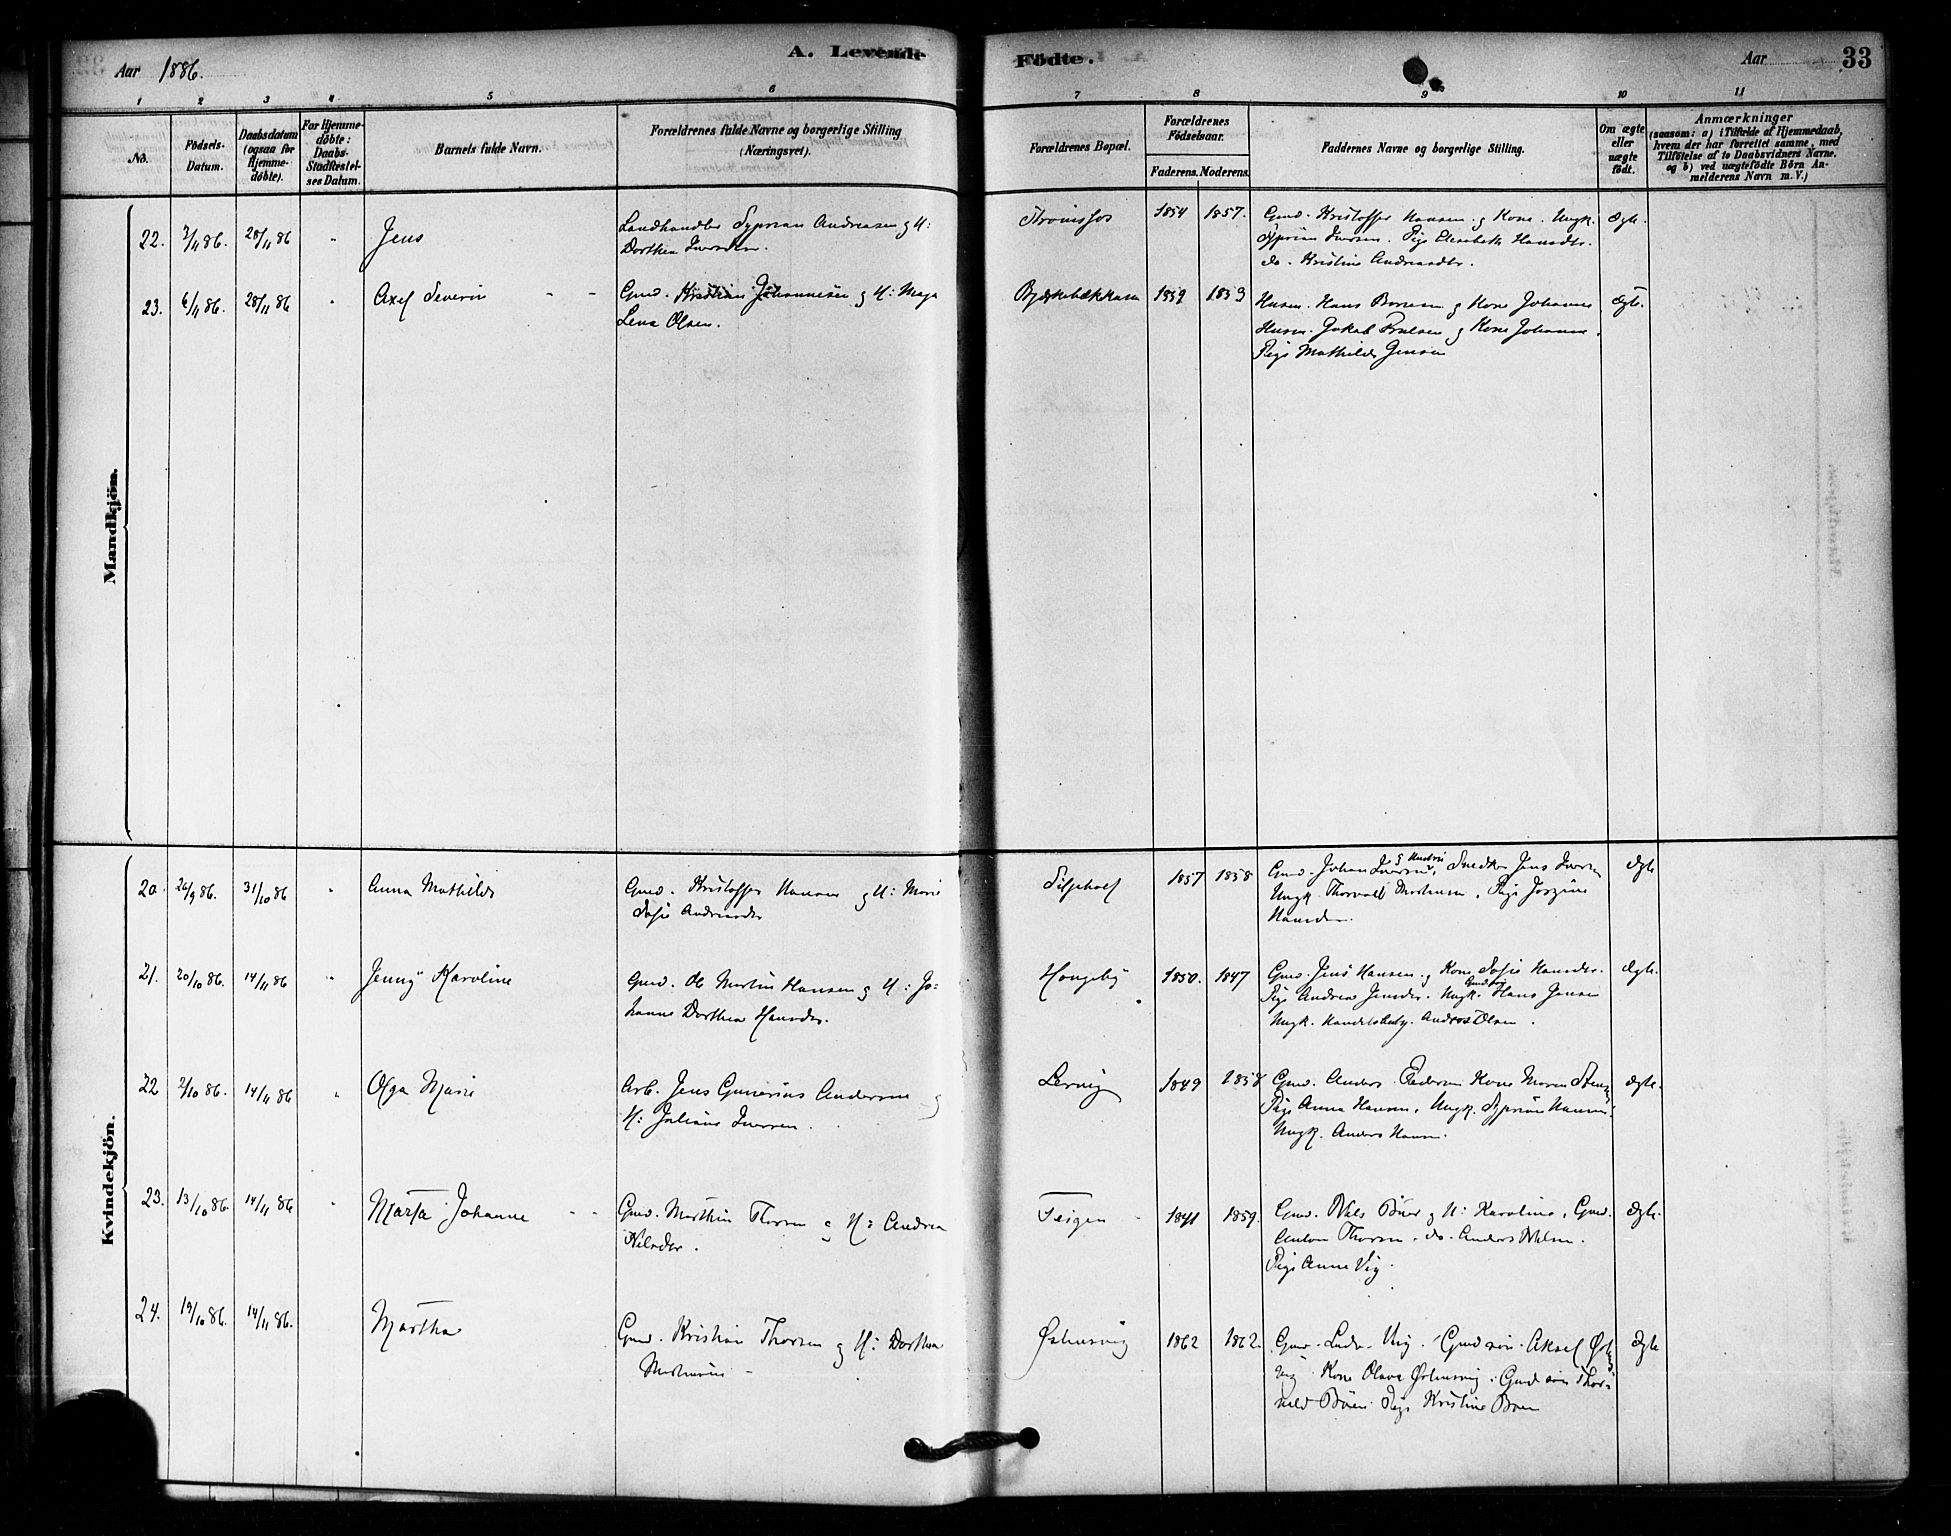 Aar 1886.
A. Levende
Födte.
Aar
33
1 2 3 4 5 6 7 8 9 10 11
No.
Födsels-
Datum.
Daabsdatum
(ogsaa for
Hjemme-
döbte).
For Hjemme-
döbte:
Daabs-
Stadfæstel-
ses Datum.
Barnets fulde Navn.
Forældrenes fulde Navne og borgerlige Stilling
(Næringsvei).
Forældrenes Bopæl.
Forældrenes
Födselsaar.
Faderens. Moderens.
Faddernes Navne og borgerlige Stilling.
Om ægte
eller
uægte
födt.
Anmærkninger
(saasom: a) i Tilfælde af Hjemmedaab,
hvem der har forrettet samme, med
Tilföielse af to Daabsvidners Navne,
og b) ved uægtefödte Börn An-
melderens Navn m. V.)
Mandkjön.
22. 3/11 86. 28/11 86 " Jens
Landhandler Syprian Andreasen og H:
Dorthea Iversen.
1854 1857.
Gmd. Kristoffer Hansen og Kone. Ungk.
Syprian Iversen. Pige Elisabeth Hansdtr.
do. Kristine Andreasdtr.
Ægte.
23. 6/11 86. 28/11 86 " Axel Severin
Gmd. Kristian Johannesen og H: Maja
Lena Olsen.
1859 1853
Husm. Hans og Kone Johanne
Husm. Jakob og Kone Johanne.
Pige Mathilde Jensen
Ægte.
Kvindekjön.
20. 26/9 86. 31/10 86 " Anna Mathilde
Gmd. Kristoffer Hansen og H: Marie
Sofie Andreasdtr
1857 1858
Gmd. Johan Iversen, Snedker Jens Iversen
Ungk. Thorvald Mortensen, Pige Jozine
Hansdtr.
Ægte
21. 20/10 86. 14/11 86 " Jenny Karoline
Gmd. Ole Martin Hansen og H: Jo=
hanne Dorthea Hansdtr.
Haugeby
1850. 1847
Gmd. Jens Hansen og Kone Sofie Hansdtr.
Pige Andrea Jensdtr. Ungk. Hans Jensen
Ungk. Handelsbetj. Andreas Olsen.
Ægte.
22 2/10 86. 14/11 86 " Olga Marie
Arb. Jens Gunerius Andersen og
H: Juliane Iversen.
Lervig
1849 1858
Gmd. Anders Pedersen Kone Maren
Pige Anna Hansen, Ungk. Syprian Hansen.
Ungk. Anders Hansen.
Ægte.
23. 13/10 86. 14/11 86 " Marta Johanne
Gmd. Marthin Thoresen og H: Andrea
Nilsdtr.
Teigen
1841 1859.
Gmd. Nils Buer og H: Karoline, Gmd.
Anton Thoresen. do. Anders Nilsen.
Pige Anna Vig.
Ægte.
24. 19/10 86. 14/11 86. Martha
Gmd. Kristian Thoresen og H: Dorthea
Mortensen
Østensvig
1862 1862.
Gmd. Vig. Gmdsøn Aksel Østens
vig. Kone Olava Østensvig. Gmdsøn Thor=
vald Buer. Pige Kristine Buer
Ægte